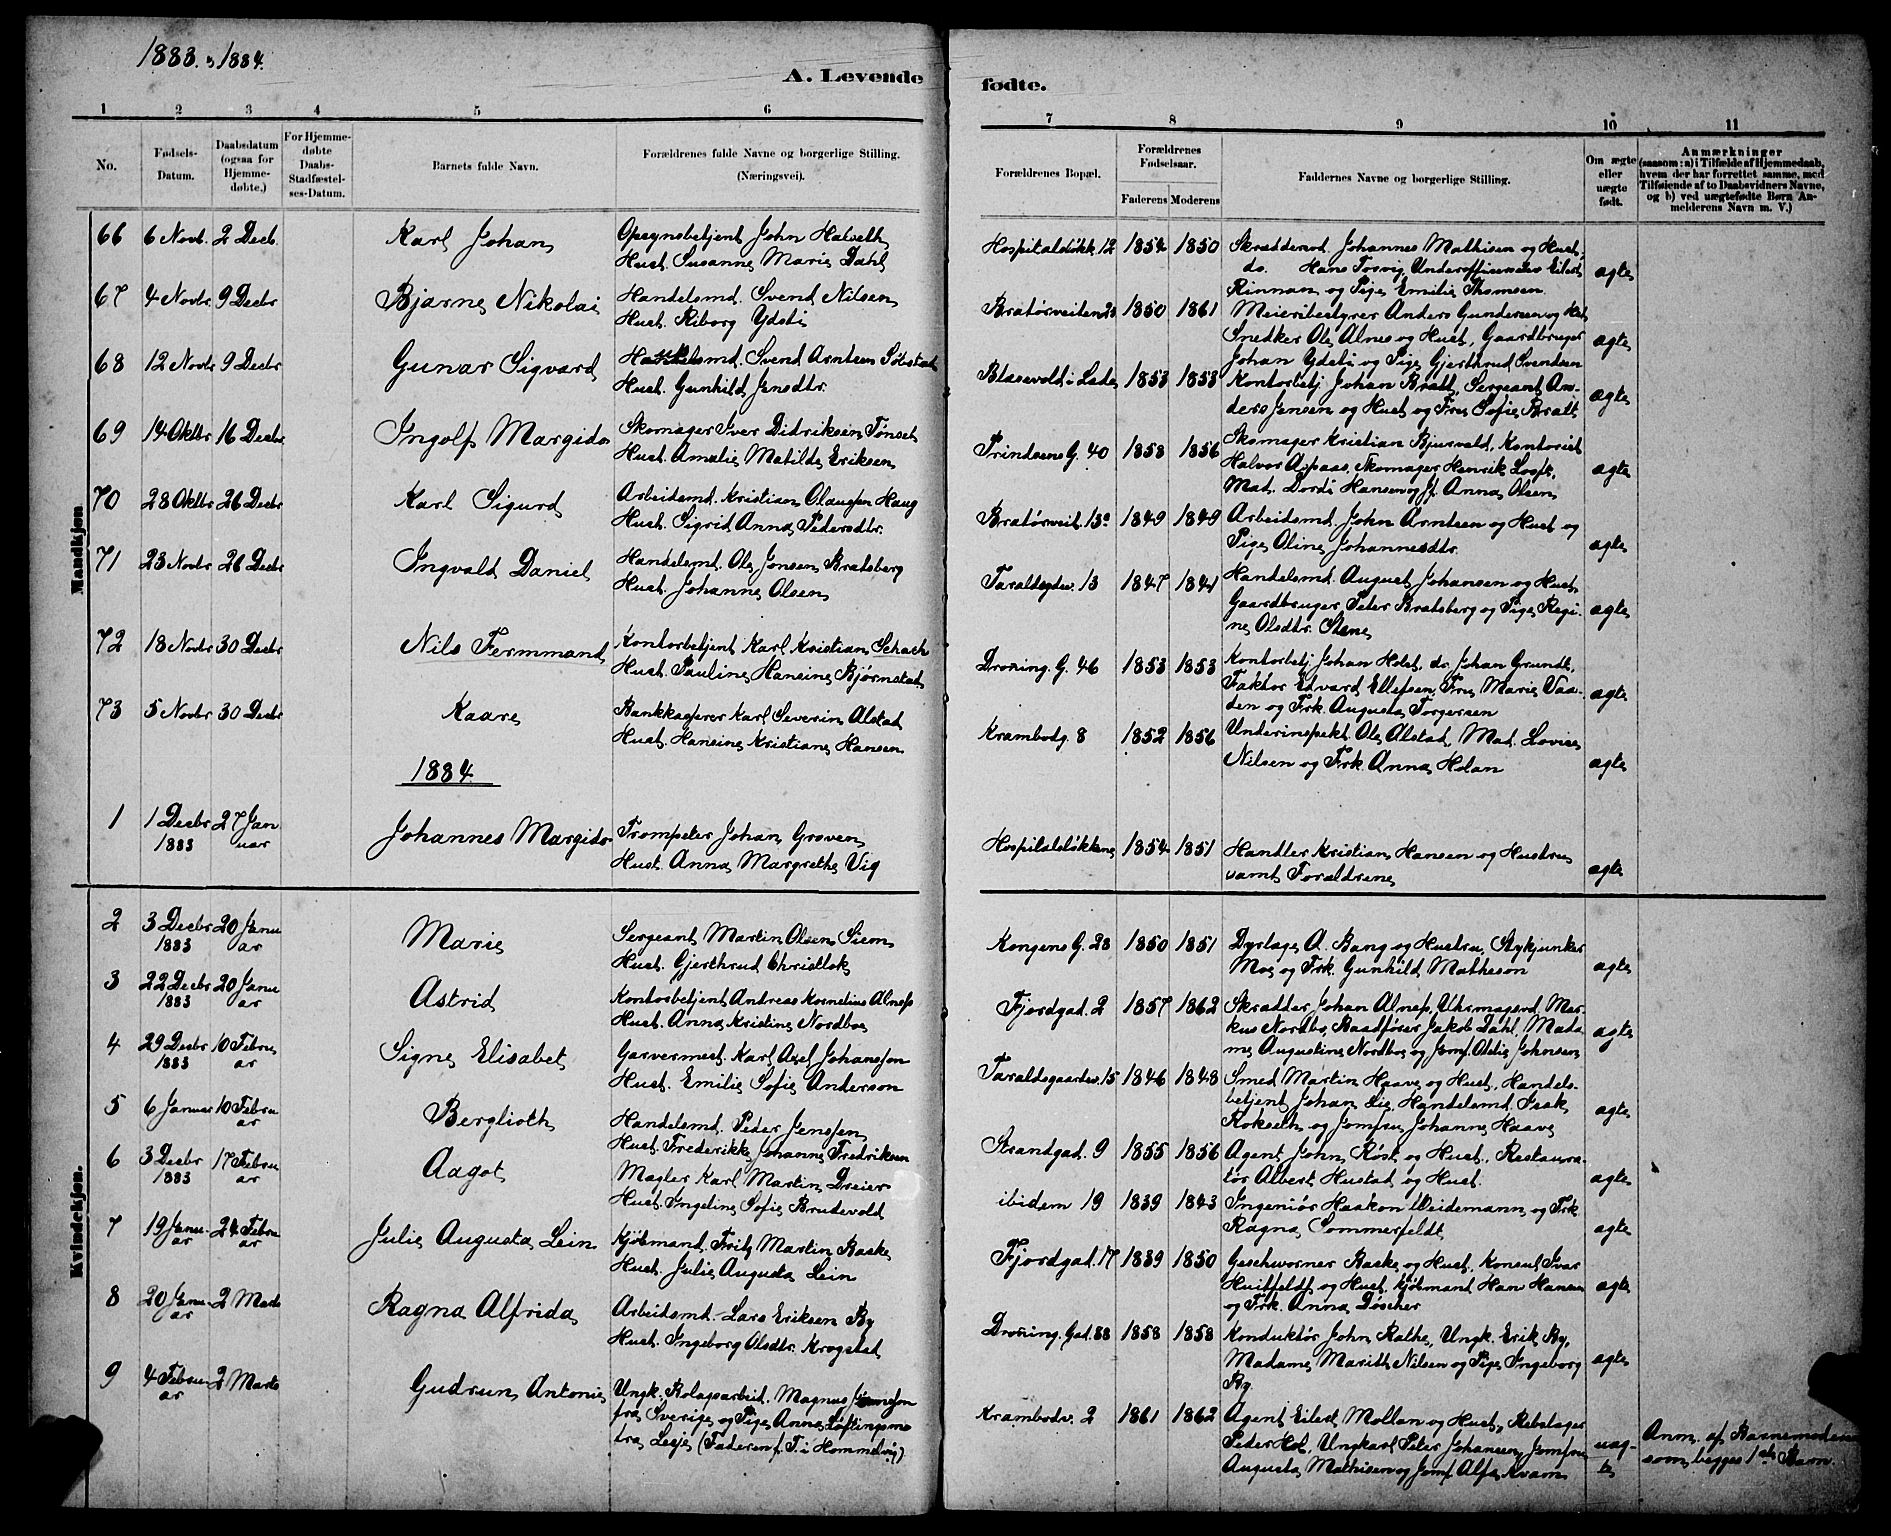 1883. 1884.
A. Levende fødte.
1 2 3 4 5 6 7 8 9 10 11
No.
Fødsels-Datum.
Daabsdatum (ogsaa for Hjemmedøbte.)
For Hjemmedøbte Daabs-Stadfæstelses-Datum.
Barnets fulde Navn.
Forældrenes fulde Navne og borgerlige Stilling. (Næringsvei).
Forældrenes Bopæl.
Forældrenes Fødselsaar.
Faderens Moderens
Faddernes Navne og borgerlige Stilling.
Om ægte eller uægte født.
Anmærkninger (saasom: a) i Tilfælde af Hjemmedaab, hvem der har forrettet samme, med Tilføiende af to Daabsvidners Navne, og b) ved uægtefødte Børn Anmelderens Navn m. V.)
Mandkjøn.
66 6 Novb. 2 Decb. Karl Johan Opsynsbetjent John Halseth Hust. Susanne Marie Dahl Hospitalsløkk. 12 1854 1850 Skræddersvd. Johannes Mathisen og Hust, do. Hans Tosvig, Underofficerselev Eilert Rinnan og Pige Emilie Thomsen ægte
67 4 Novbr 9 Decbr Bjarne Nikolai Handelsmd. Svend Nilsen Hust. Riborg Ydsti Bratørveiten 23 1850 1861 Meieribestyrer Anders Gundersen og Hst, Snedker Ole Alnes og Hust, Gaardbruger Johan Ydsti og Pige Gjerthrud Svendsen ægte
68 12 Novbr 9 Decbr Gunar Sigvard Handelsmd. Svend Arntsen Solstad Hust. Gunhild Jensdtr. Blasevold i Lade 1853 1853 Kontorbetj Johan Bratt, Sergeant Anders Jensen og Hust og Fru Sofie Bratt ægte
69 14 Oktbr 16 Decbr Ingolf Margido Skomager Iver Didriksen Tønset Hust. Amalie Matilde Eriksen Prindsens G. 40 1858 1856 Skomager Kristian Bjurvald, Kontorist Halvor Aspaas, Skomager Henrik Mad. Dordi Hansen og Jf. Anna Olsen ægte
70 28 Oktbr 26 Decbr Karl Sigurd Arbeidsmd. Kristian Olaussen Haug Hust. Sigrid Anna Pedersdtr. Bratørveit. 13a 1849 1849 Arbeidsmd. John Arntsen og Hust og Pige Oline Johannesdtr. ægte
71 23 Novbr 26 Decbr Ingvald Daniel Handelsmd. Ole Jonsen Bratsberg Hust. Johanne Olsen Taraldsgdsv. 13 1847 1841 Handelsmd. August Johansen og Hust Gaardbruger Peter Bratsberg og Pige Regine Olsdtr. Stene ægte
72 18 Novbr 30 Decbr Nils Fermmand Kontorbetjent Karl Kristian Schach Hust. Pauline Hansine Bjørnstad Dronning. G. 46 1853 1853 Kontorbetj Johan Holst, do. Johan Grundt, Faktor Edvard Ellefsen, Fru Marie Vaaden og Frk. Augusta Torgersen ægte
73 5 Novbr 30 Decbr Kaare Bankkasserer Karl Severin Alstad Hust. Hansine Kristiane Hansen Krambodg. 8 1852 1856 Underinspekt. Ole Alstad, Mad. Lovise Nilsen og Frk. Anna Holan ægte
1884
1 1 Decbr 1883 27 Januar Johannes Margido Trompeter Johan Groven Hust. Anna Margrethe Vig Hospitalsløkkene 1854 1851 Handler Kristian Hansen og Hustru samt Forældrene ægte
Kvindekjøn.
2 3 Decbr 1883 20 Januar Marie Sergeant Martin Olsen Siem Hust. Gjerthrud Christlok Kongens G. 28 1850 1851 Dyrlæge A. Bang og Hustru, Stykjunker Moe og Frk. Gunhild Matheson ægte
3 22 Decbr 1883 20 Januar Astrid Kontorbetjent Andreas Kornelius Alness Hust. Anna Kristine Nordboe Fjordgad. 2 1857 1862 Skrædder Johan Alness, Uhrmagersvd. Markus Nordbo, Baadfører Jakob Dahl, Madame Augustine Nordbo og Jomf. Otelie Johnsen ægte
4 29 Decbr 1883 10 Februar Signe Elisabet Garvermest. Karl Axel Johansson Hust. Emilie Sofie Anderson Taraldsgaardsv. 15 1846 1848 Smed Martin Haave og Hust, Handelsbetjent Johan Lie, Handelsmd. Isak Rokseth og Jomfru Johanne Haave ægte
5 6 Januar 10 Februar Berglioth Handelsmd. Peder Jenssen Hust. Frederikke Johanne Fredriksen Strandgad. 9 1855 1856 Agent John Røst og Hust., Restauratør Albert Hustad og Hust. ægte
6 3 Decbr 1883 17 Februar Aagot Mægler Karl Martin Dreier Hust. Ingeline Sofie Brudevold ibidem 19 1839 1843 Ingeniør Haakon Weidemann og Frk Ragna Sommerfeldt ægte
7 19 Januar 24 Februar Julie Augusta Lein Kjøbmand Fritz Martin Baske Hust. Julie Augusta Lein Fjordgad. 17 1839 1850 Geschworner Baske og Hust, Konsul Ivar Huitfeldt og Hust, Kjøbmand Han Hansen og Frk. Anna Døscher ægte
8 20 Januar 2 Marts Ragna Alfrida Arbeidsmd. Lars Eriksen By Hust. Ingeborg Olsdtr. Krogstad Dronning. Gad. 38 1858 1858 Konduktør John Rathe, Ungk. Erik By, Madame Marith Nilsen og Pige Ingeborg By. ægte
9 4 Februar 2 Marts Gudrun Antonie Ungk. Bolagsarbeid. Magnus Jonesson fra Sverige og Pige Anna Løftingsmo fra Lesje (Faderen f. T. i Hommelvig) Krambodv. 2 1861 1862 Agent Eilert Mollan og Hust, Rebslager Peder Hol, Ungkarl Peter Johansen, Jomfru Augusta Mathisen og Jomf. Alfa Kvam uægte Anm. af Barnemoderen som begges 1ste Barn.